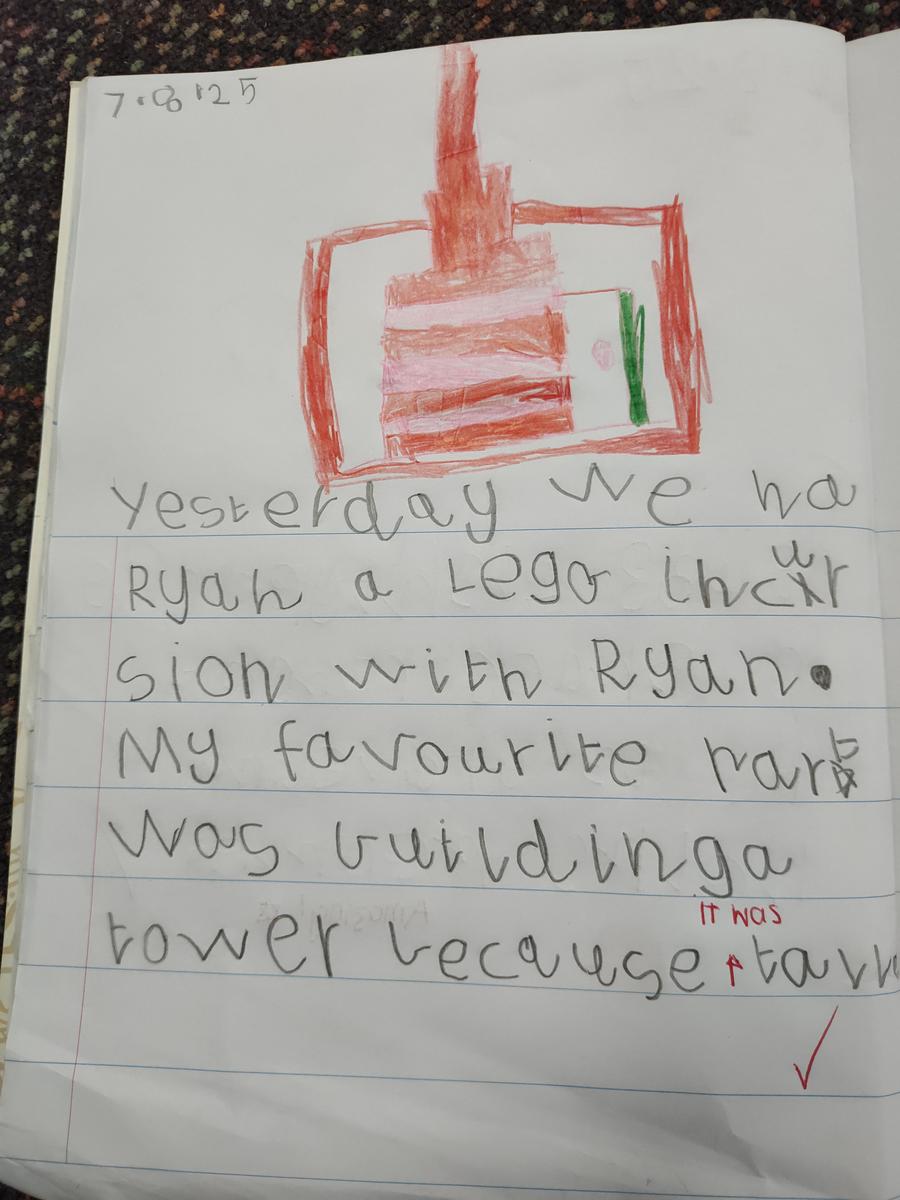 7.8.25
Yesterday we ha
Ryan a Lego incur
sion with Ryan.
My favourite part
was building a
it was
tower because